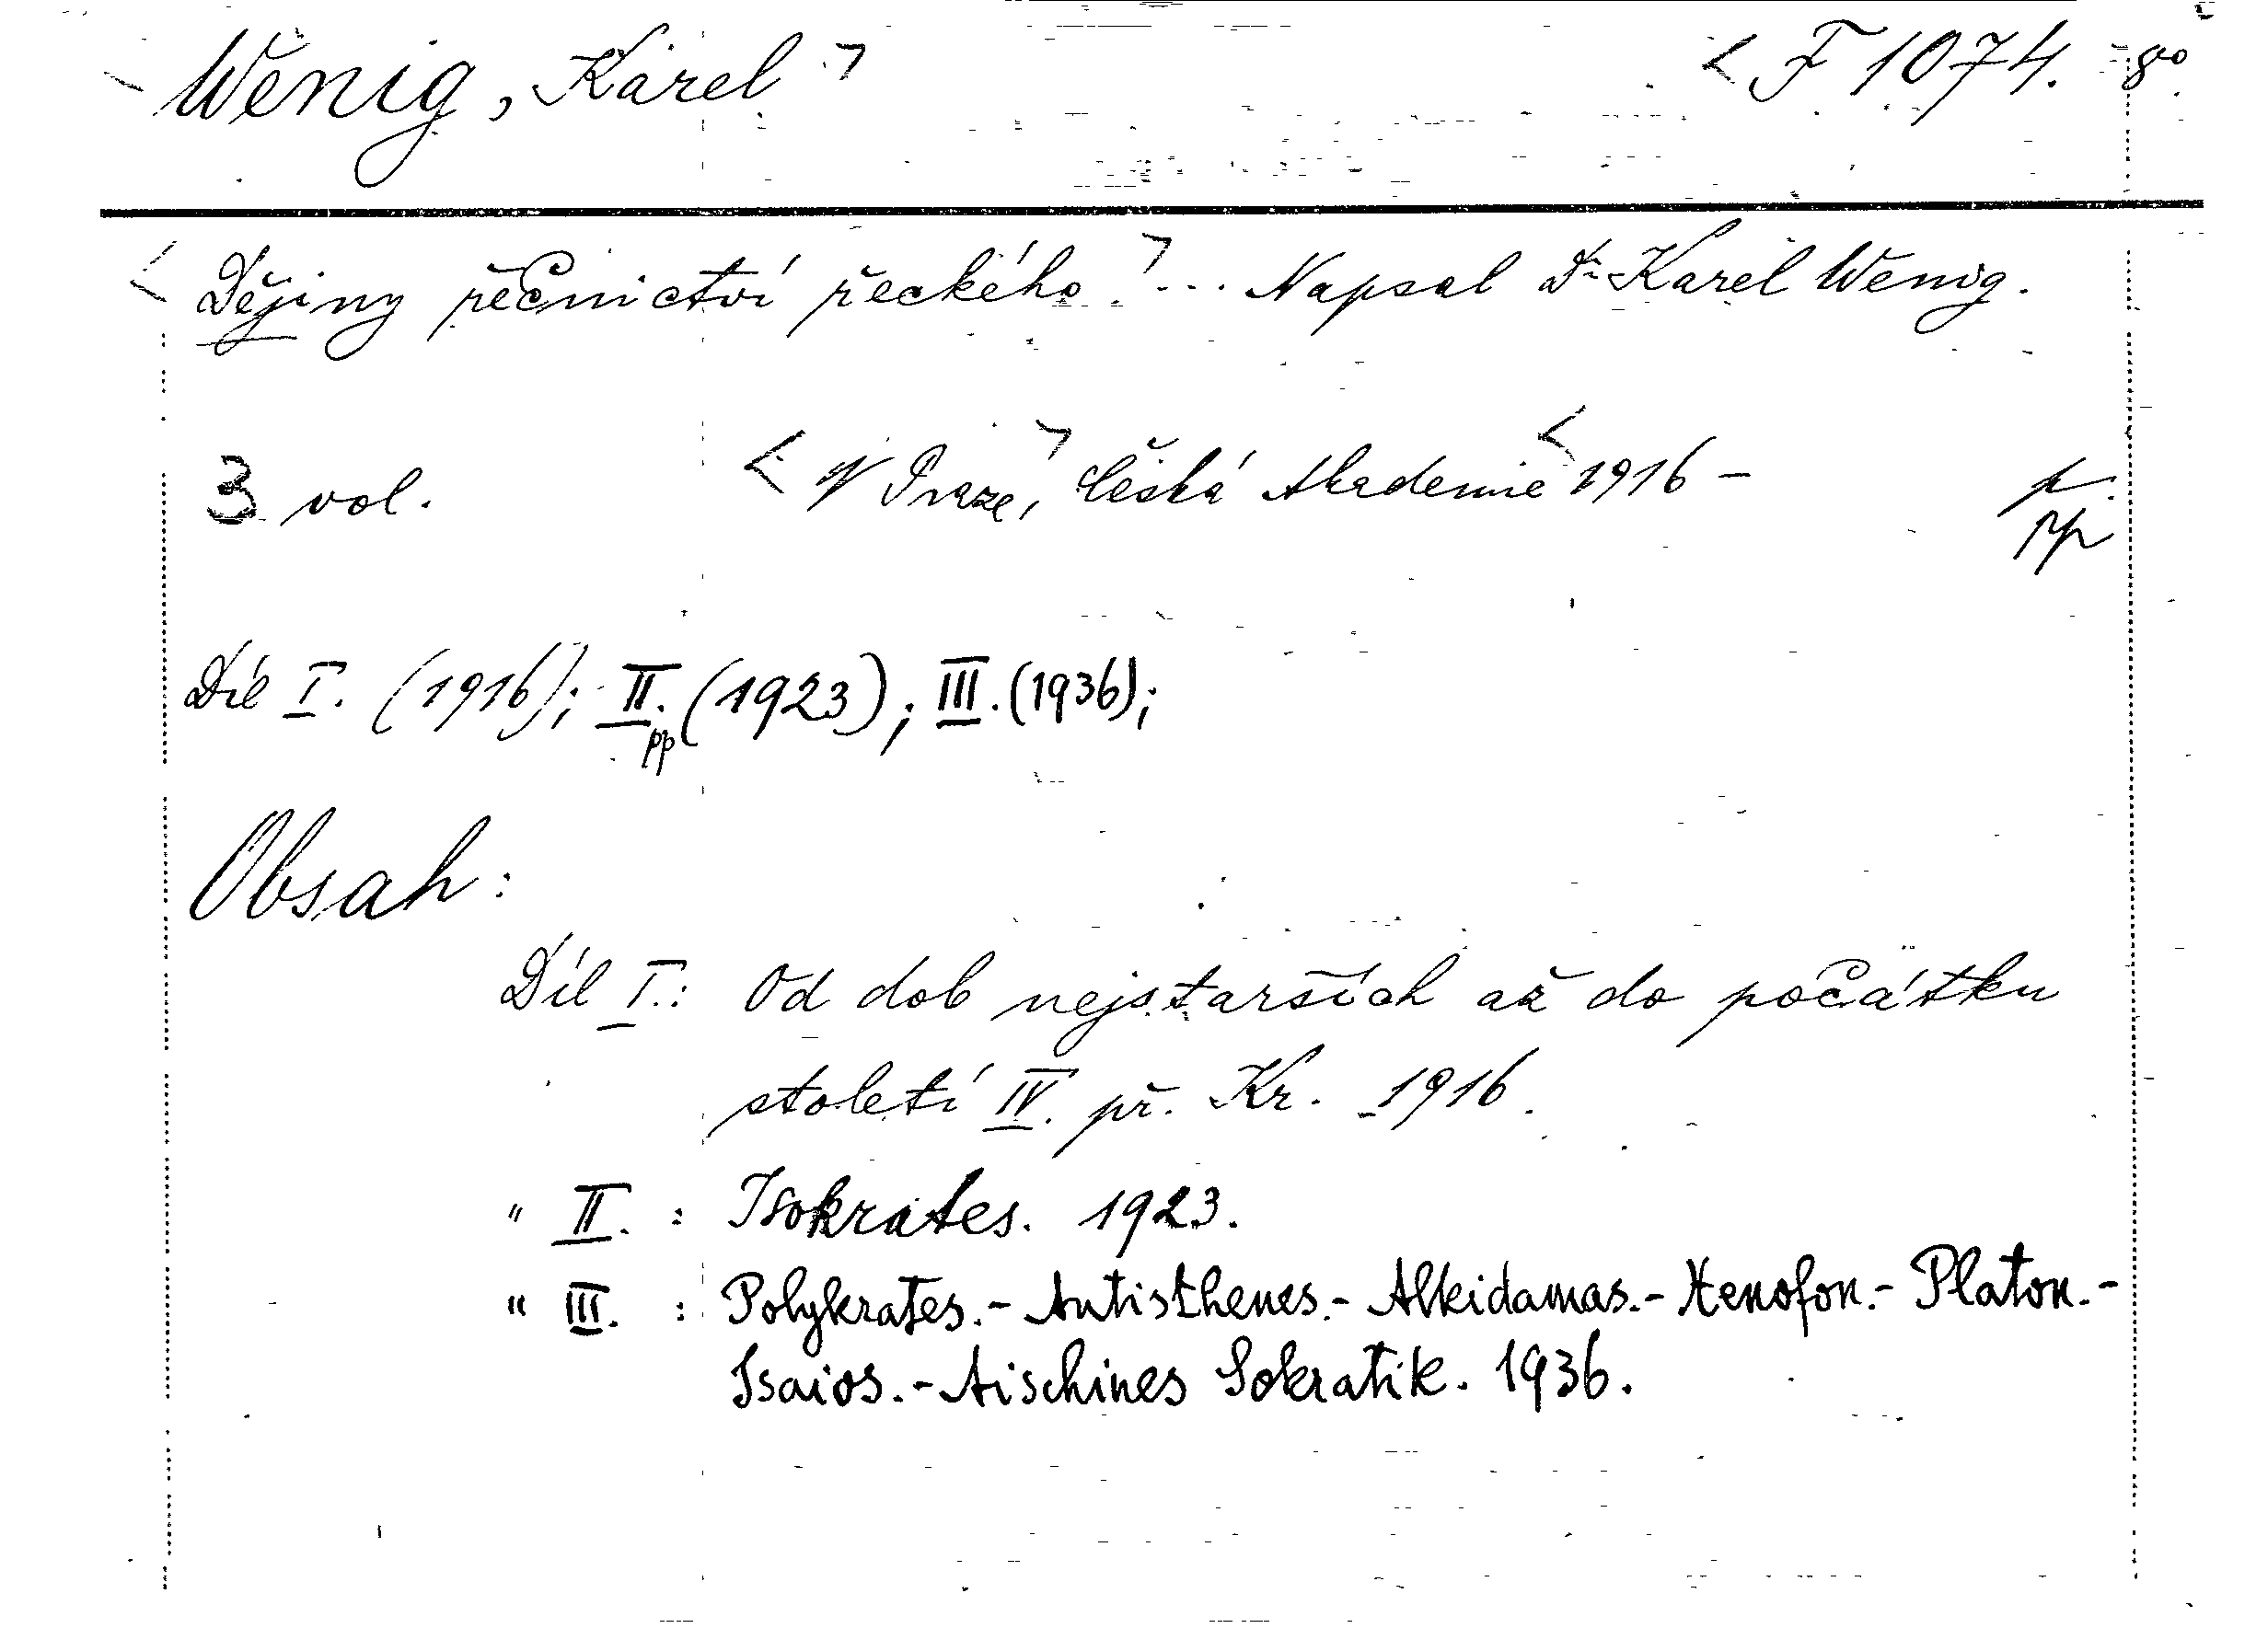 Wenig, Karel F 1074. 8°
Dějiny řečnictví řeckého. ... Napsal Dr Karel Wenig.
3 vol. V Praze, Česká Akademie 1916 - p
pp
Díl I. (1916); II. (1923); III. (1936);
pp
Obsah:
Díl I.: Od dob nejstarších až do počátku
století IV. př. Kr. 1916.
" II. : Isokrates. 1923.
" III. : Polykrates.- Antisthenes.- Alkidamas.- Xenofon.- Platon.-
Isaios.- Aischines Sokratik. 1936.